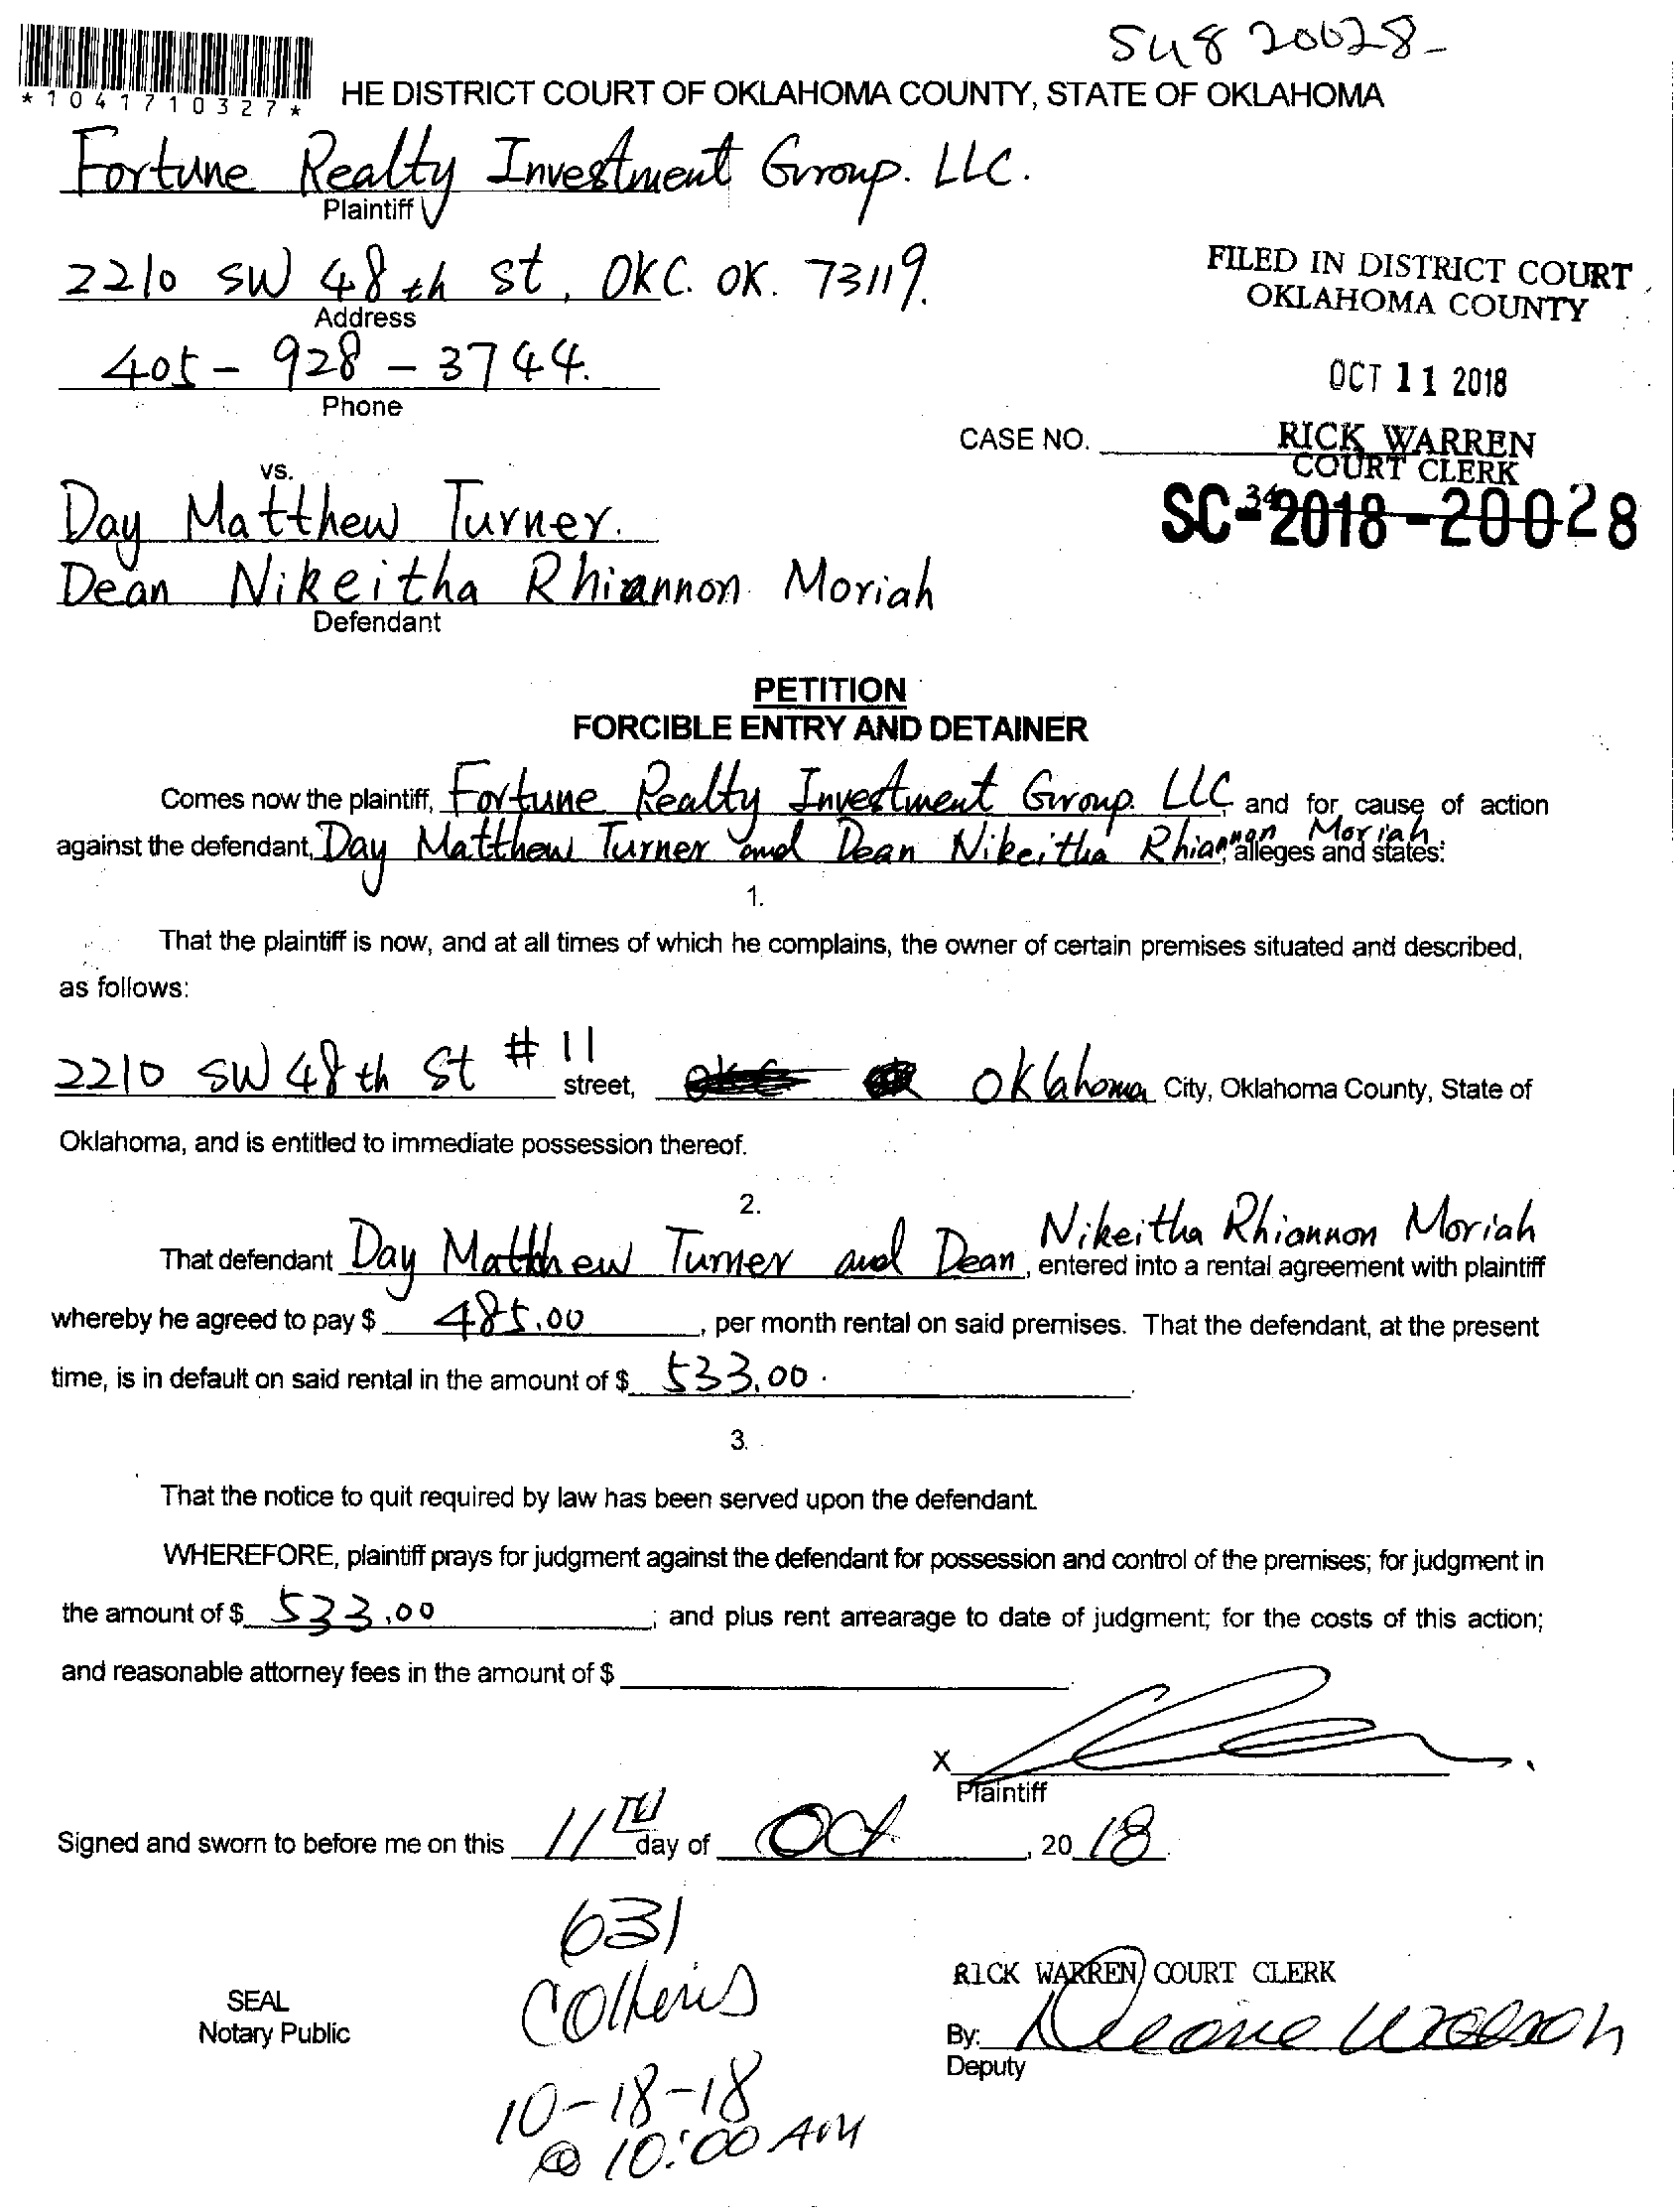 SU8 20028-
*1041710327*
HE DISTRICT COURT OF OKLAHOMA COUNTY, STATE OF OKLAHOMA
Fortune Realty Investment Group. LLC.
Plaintiff
2210 SW 48th St, OKC. OK. 73119.
Address
FILED IN DISTRICT COURT
OKLAHOMA COUNTY
405-928-3744.
Phone
OCT 11 2018
CASE NO.
RICK WARREN
COURT CLERK
34
SC-2018-20028
vs.
Day Matthew Turner.
Dean Nikeitha Rhiannon Moriah
Defendant
PETITION
FORCIBLE ENTRY AND DETAINER
Comes now the plaintiff, Fortune Realty Investment Group. LLC, and for cause of action
against the defendant, Day Matthew Turner and Dean Nikeitha Rhiannon Moriah, alleges and states:
1.
That the plaintiff is now, and at all times of which he complains, the owner of certain premises situated and described,
as follows:
2210 SW 48th St #11 street, Oklahoma City, Oklahoma County, State of
Oklahoma, and is entitled to immediate possession thereof.
2.
That defendant Day Matthew Turner and Dean Nikeitha Rhiannon Moriah, entered into a rental agreement with plaintiff
whereby he agreed to pay $ 485.00, per month rental on said premises. That the defendant, at the present
time, is in default on said rental in the amount of $ 533.00.
3.
That the notice to quit required by law has been served upon the defendant.
WHEREFORE, plaintiff prays for judgment against the defendant for possession and control of the premises; for judgment in
the amount of $ 533.00; and plus rent arrearage to date of judgment; for the costs of this action;
and reasonable attorney fees in the amount of $
X
Plaintiff
Signed and sworn to before me on this 11TH day of Oct, 2018.
631
SEAL
Notary Public
RICK WARREN, COURT CLERK
By:
Deputy
10-18-18
@ 10:00 AM